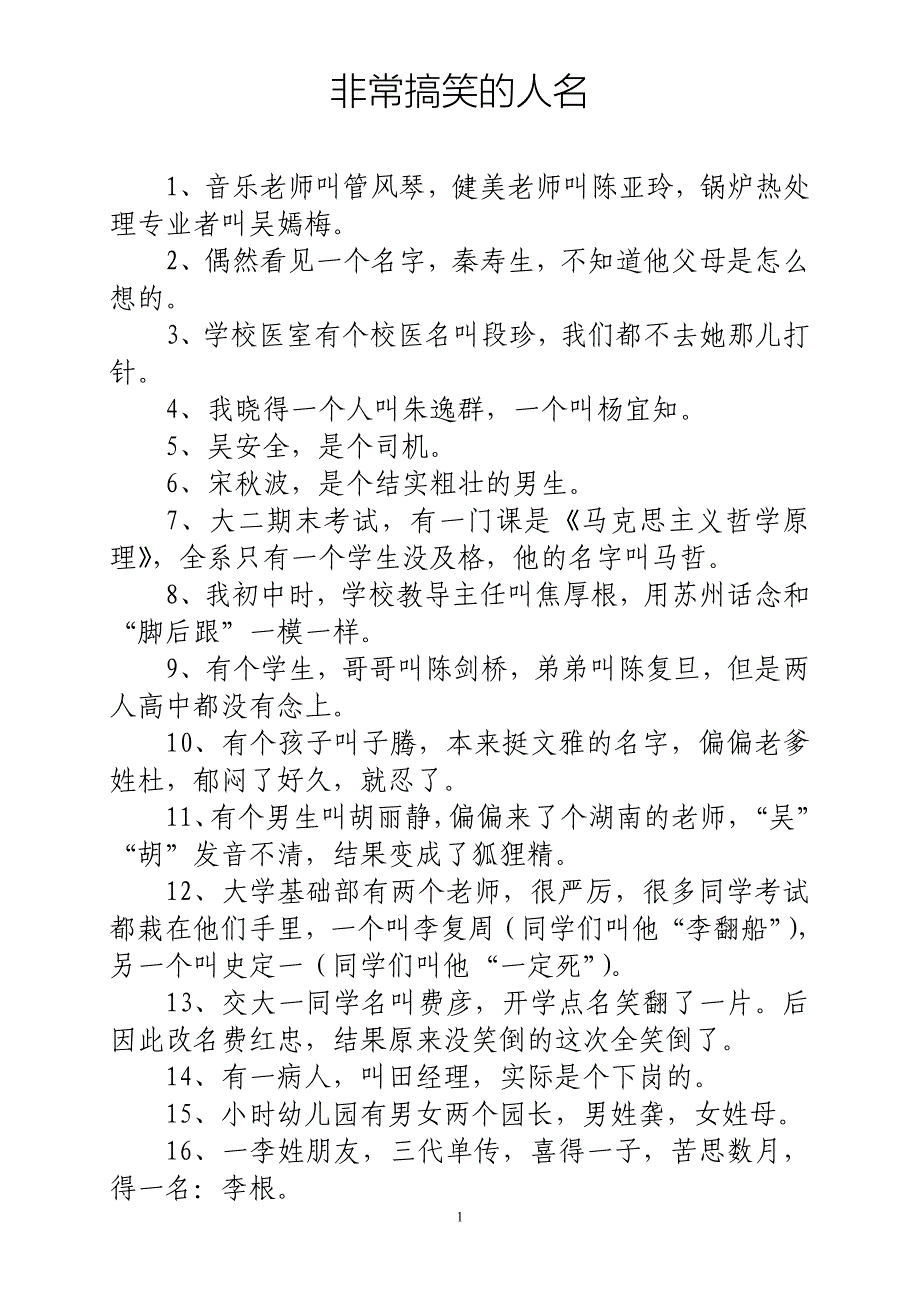 非常搞笑的人名
1、音乐老师叫管风琴，健美老师叫陈亚玲，锅炉热处
理专业者叫吴嫣梅。
2、偶然看见一个名字，秦寿生，不知道他父母是怎么
想的。
3、学校医室有个校医名叫段珍，我们都不去她那儿打
针。
4、我晓得一个人叫朱逸群，一个叫杨宜知。
5、吴安全，是个司机。
6、宋秋波，是个结实粗壮的男生。
7、大二期末考试，有一门课是《马克思主义哲学原
理》，全系只有一个学生没及格，他的名字叫马哲。
8、我初中时，学校教导主任叫焦厚根，用苏州话念和
“脚后跟”一模一样。
9、有个学生，哥哥叫陈剑桥，弟弟叫陈复旦，但是两
人高中都没有念上。
10、有个孩子叫子腾，本来挺文雅的名字，偏偏老爹
姓杜，郁闷了好久，就忍了。
11、有个男生叫胡丽静，偏偏来了个湖南的老师，“吴”
“胡”发音不清，结果变成了狐狸精。
12、大学基础部有两个老师，很严厉，很多同学考试
都栽在他们手里，一个叫李复周（同学们叫他“李翻船”），
另一个叫史定一（同学们叫他“一定死”）。
13、交大一同学名叫费彦，开学点名笑翻了一片。后
因此改名费红忠，结果原来没笑倒的这次全笑倒了。
14、有一病人，叫田经理，实际是个下岗的。
15、小时幼儿园有男女两个园长，男姓龚，女姓母。
16、一李姓朋友，三代单传，喜得一子，苦思数月，
得一名：李根。
1